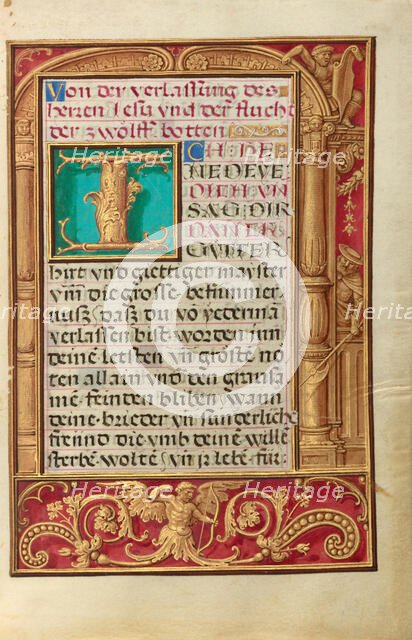 Von der verlassung des
herren Jesu vnd der flucht
der zwölff botten
ICH BE
NEDEYE
DICH VN
SAG DIR
DANCK
GVTER
hirt vnd giettiger mayster
vm̄ die grosse bekummer
nusz das du vō yederman
verlassen bist worden inn
deine letsten vn̄ gröste no
ten allain vnd den grausa
mē feinden bliben wann
deine brieder vn̄ sunderliche
freund die vmb deine willē
sterbē woltē vn̄ ir lebē für
Heritage
Heritage
Heritage
Heritage
Heritage
Heritage
Heritage
Heritage